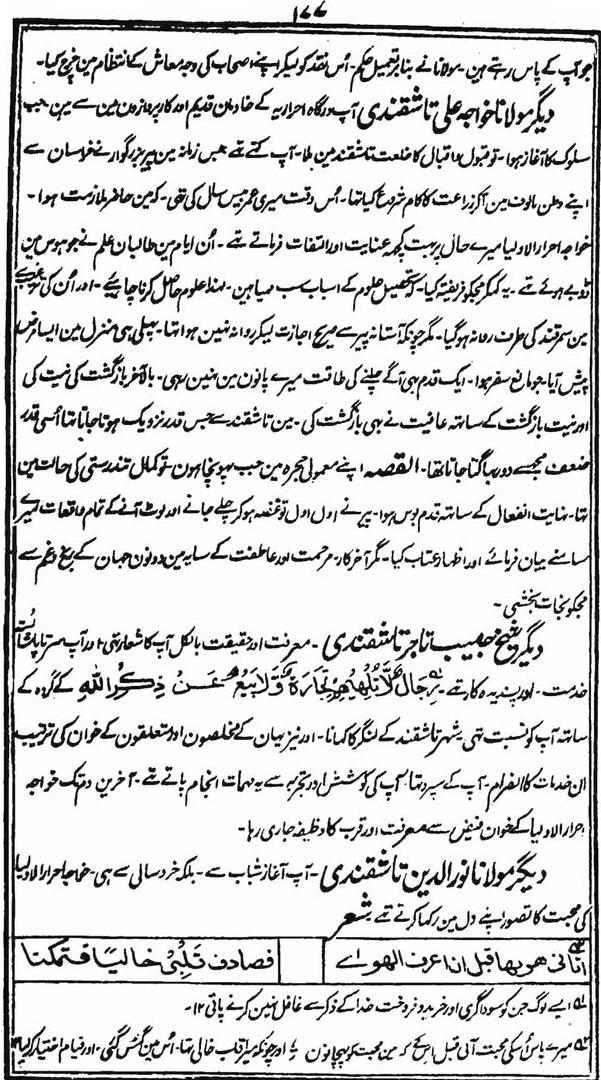 ۱۷۷
جو آپ کے پاس رہتے ہین۔ مولانا نے بنا بر تعمیل حکم۔ اُس نقد کو لیکر اپنے اصحاب کی وجہ معاش کے انتظام مین خرچ کیا۔
دیگر مولانا خواجہ علی تاشقندی آپ درگاہ احراریہ کے خادمان قدیم اور کارپردازون مین سے ہین۔ جب
سلوک کا آغاز ہوا۔ تو قبول و اقبال کا خلعت تاشقند مین ملا۔ آپ کہتے تھے جس زمانہ مین پیر بزرگوار نے خراسان سے
اپنے وطن مالوف مین آکر زراعت کا کام شروع کیا تھا۔ اُس وقت میری عمر بیس سال کی تھی۔ کہ مین حاضر ملازمت ہوا۔
خواجہ احرار الاولیا میرے حال پر بہت کچھ عنایت اور التفات فرماتے تھے۔ اُن ایام مین طالبان علم نے جو ہوس مین
ڈوبے ہوئے تھے۔ یہ کہکر مجکو فریفتہ کیا۔ کہ تحصیل علوم کے اسباب سب مہیا ہین۔ لہذا علوم حاصل کرنا چاہیے۔ اور اُن کی
مین سمرقند کی طرف روانہ ہوگیا۔ مگر چونکہ آستانہ پیر سے صریح اجازت لیکر روانہ نہین ہوا تھا۔ پہلی ہی منزل مین ایسا مرض
پیش آیا۔ جو مانع سفر ہوا۔ ایک قدم بھی آگے چلنے کی طاقت میرے پانون مین نہین رہی۔ بالآخر بازگشت کی نیت کی
اور نیت بازگشت کے ساتھ عافیت نے بھی بازگشت کی۔ مین تاشقند سے جس قدر نزدیک ہوتا جاتا تھا اُسی قدر
ضعف مجھسے دور بھاگتا جاتا تھا۔ القصہ اپنے معمولی حجرہ مین جب پہونچا ہون۔ تو کمال تندرستی کی حالت مین
تھا۔ نہایت انفعال کے ساتھ قدم بوس ہوا۔ پیر نے اول اول تو غصہ ہوکر چلے جانے اور لوٹ آنے کے تمام واقعات میرے
سامنے بیان فرمائے اور اظہار عتاب کیا۔ مگر آخرکار۔ مرحمت اور عاطفت کے سایہ مین دونون جہان کے رنج و غم سے
مجکو نجات بخشی۔
دیگر شیخ حبیب تاجر تاشقندی۔ معرفت اور حقیقت بالکل آپ کا شعار تھی۔ اور آپ سرتاپا شائستہ
خدمت۔ اور پسندیدہ کار تھے۔ رِجَالٌ لَّا تُلْهِيهِمْ تِجَارَةٌ وَّلَا بَيْعٌ عَنْ ذِكْرِ اللهِ کے گروہ کے
ساتھ آپ کو نسبت تھی شہر تاشقند کے لنگر کا کھانا۔ اور نیز یہان کے مخلصون اور متعلقون کے خوان کی ترتیب
ان خدمات کا انصرام۔ آپ کے سپرد تھا۔ آپ کی کوشش اور تجربہ سے یہ مہمات انجام پاتے تھے۔ آخرین دم تک خواجہ
احرار الاولیا کے خوان فیض سے معرفت اور قرب کا وظیفہ جاری رہا۔
دیگر مولانا نور الدین تاشقندی۔ آپ آغاز شباب سے۔ بلکہ خرد سالی سے ہی۔ خواجہ احرار الاولیا
کی محبت کا تصور اپنے دل مین رکھا کرتے تھے شعر
اتانی ھویھا قبل ان اعرف الھواے فصادف قلبی خالیا فتمکنا
لہ ایسے لوگ جن کو سوداگری اور خرید و فروخت خدا کے ذکر سے غافل نہین کرنے پاتی ۱۲۔
میرے پاس اُسکی محبت آئی قبل اسکے کہ مین محبت کو پہچانون اور چونکہ میرا قلب خالی تھا۔ اُس مین گھس گئی۔ اور قیام اختیار کرلیا